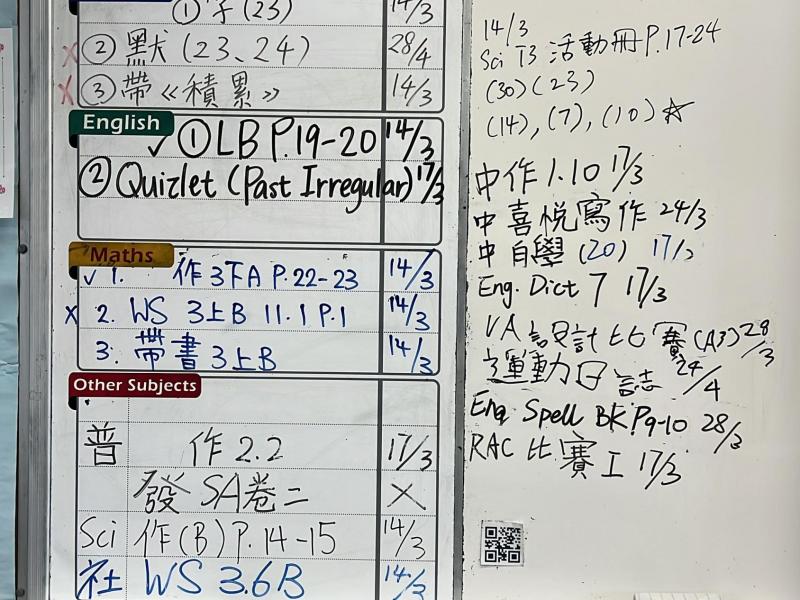 ①字(23) 14/3
✗②默(23、24) 28/4
✗③帶《積累》 14/3
English
✓①LB P.19-20 14/3
②Quizlet (Past Irregular) 17/3
Maths
✓1. 作3下A P.22-23 14/3
✗2. WS 3上B 11.1 P.1 14/3
3. 帶書3上B 14/3
Other Subjects
普 作2.2 17/3
發SA卷二 ✗
Sci 作(B) P.14-15 14/3
社 WS 3.6B 14/3
14/3
Sci T3 活動冊P.17-24
(30)(23)
(14),(7),(10)☆
中作1.10 17/3
中喜悅寫作 24/3
中自學(20) 17/3
Eng. Dict 7 17/3
VA設計比賽(A3) 28/3
運動日誌 24/4
Eng Spell BK P.9-10 28/3
RAC比賽工 17/3